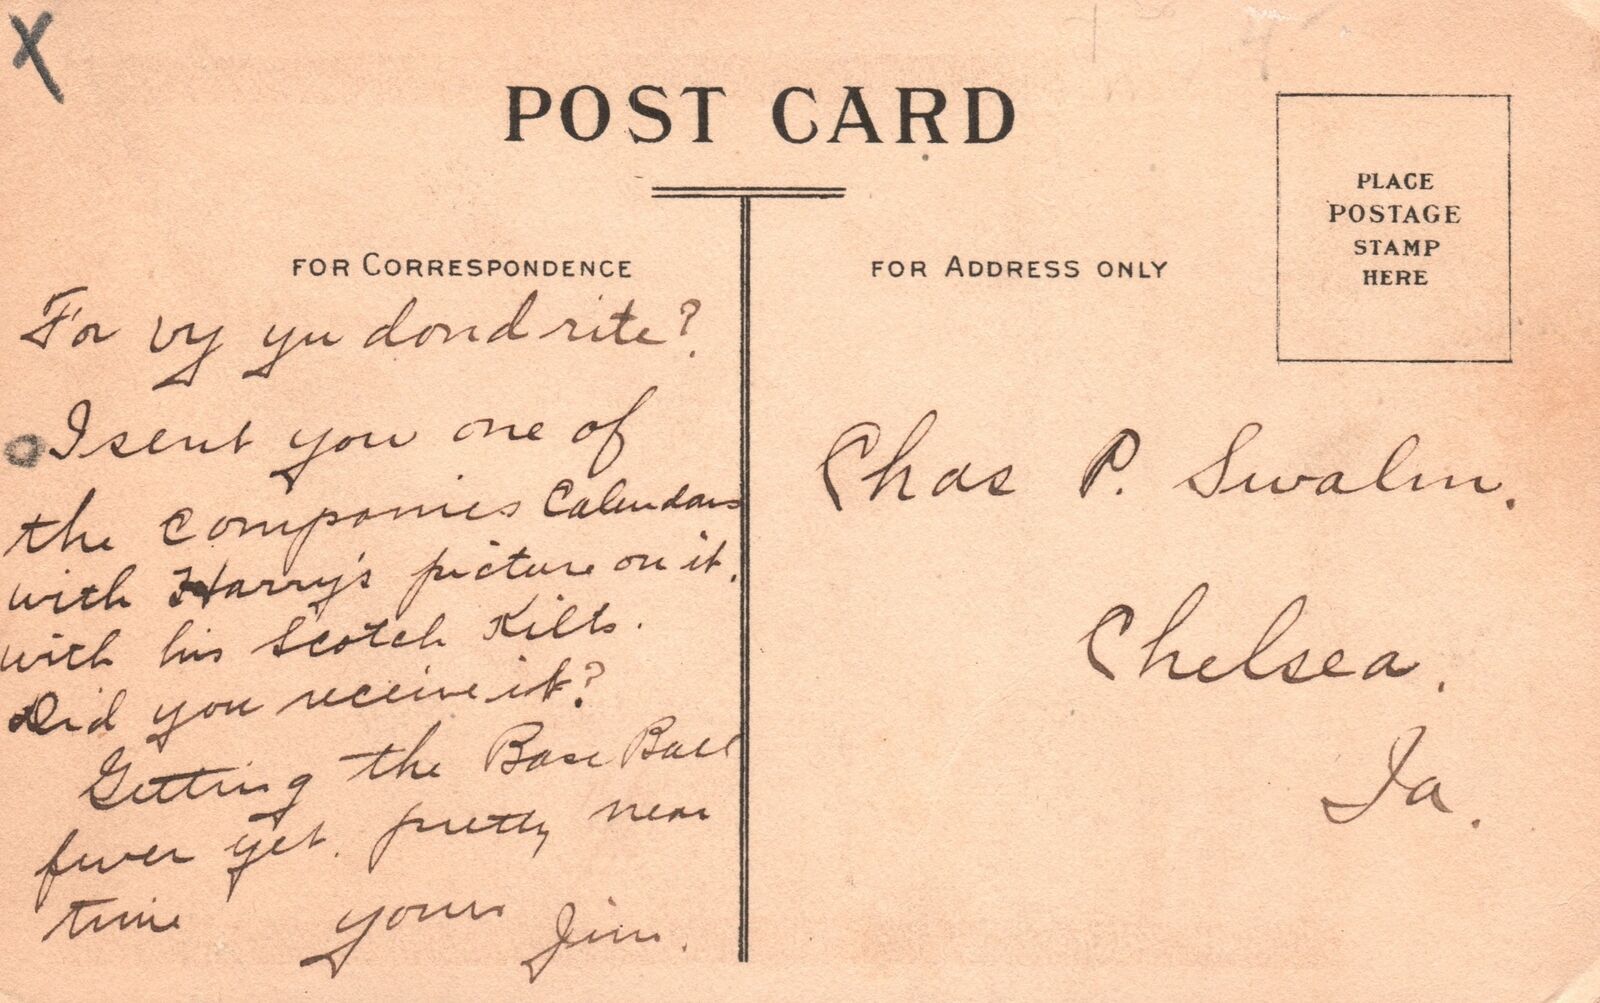 X
POST CARD
PLACE
POSTAGE
STAMP
HERE
FOR CORRESPONDENCE
For vy yu dond rite?
I sent you one of
the companies Calendars
with Harry's picture on it.
with his Scotch Kilts.
Did you receive it?
Getting the Base Ball
fever yet. pretty near
time yours Jim.
FOR ADDRESS ONLY
Chas P. Swalm.
Chelsea.
Ia.